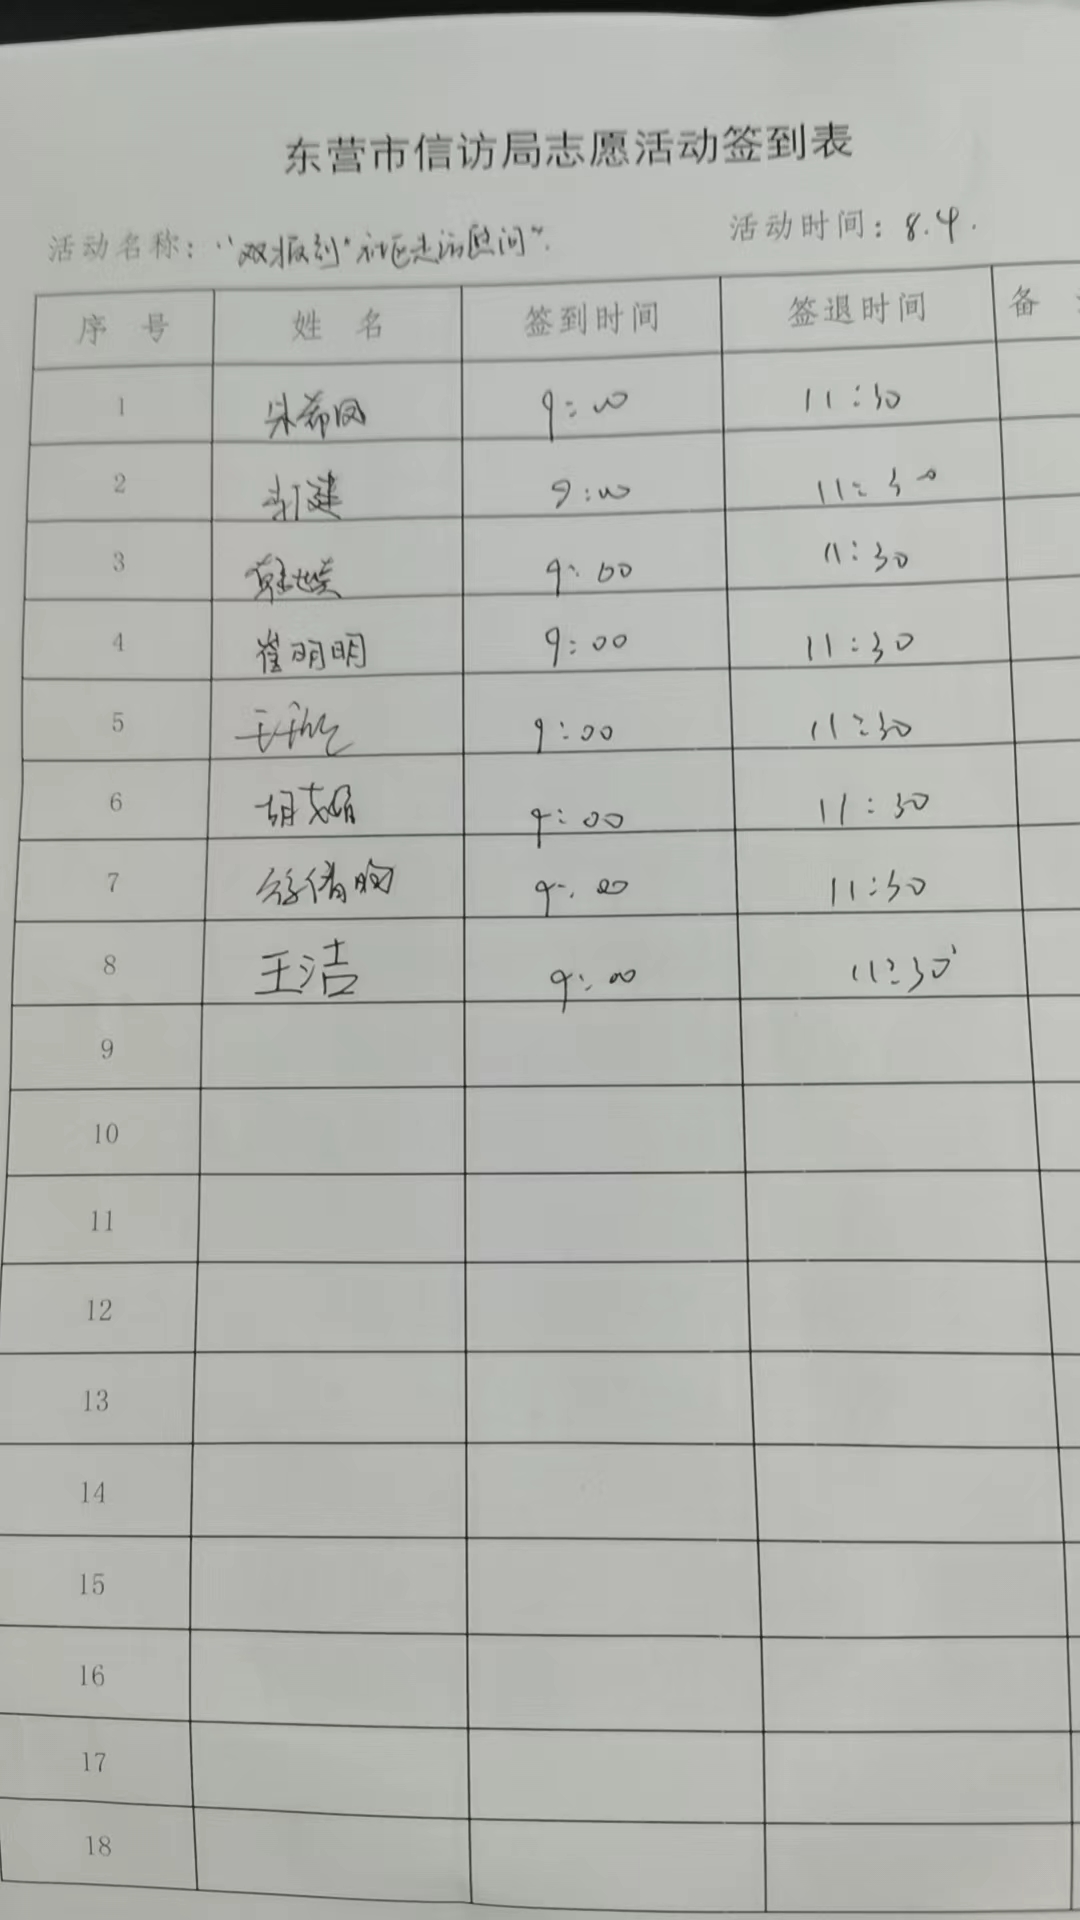 东营市信访局志愿活动签到表
活动名称: “双报到”社区走访慰问”. 活动时间: 8.4.
序 号 姓 名 签到时间 签退时间 备
1 朱希凤 9:00 11:30
2 建 9:00 11:30
3 9:00 11:30
4 崔明明 9:00 11:30
5 9:00 11:30
6 胡文娟 9:00 11:30
7 徐倩 9:00 11:30
8 王洁 9:00 11:30
9
10
11
12
13
14
15
16
17
18